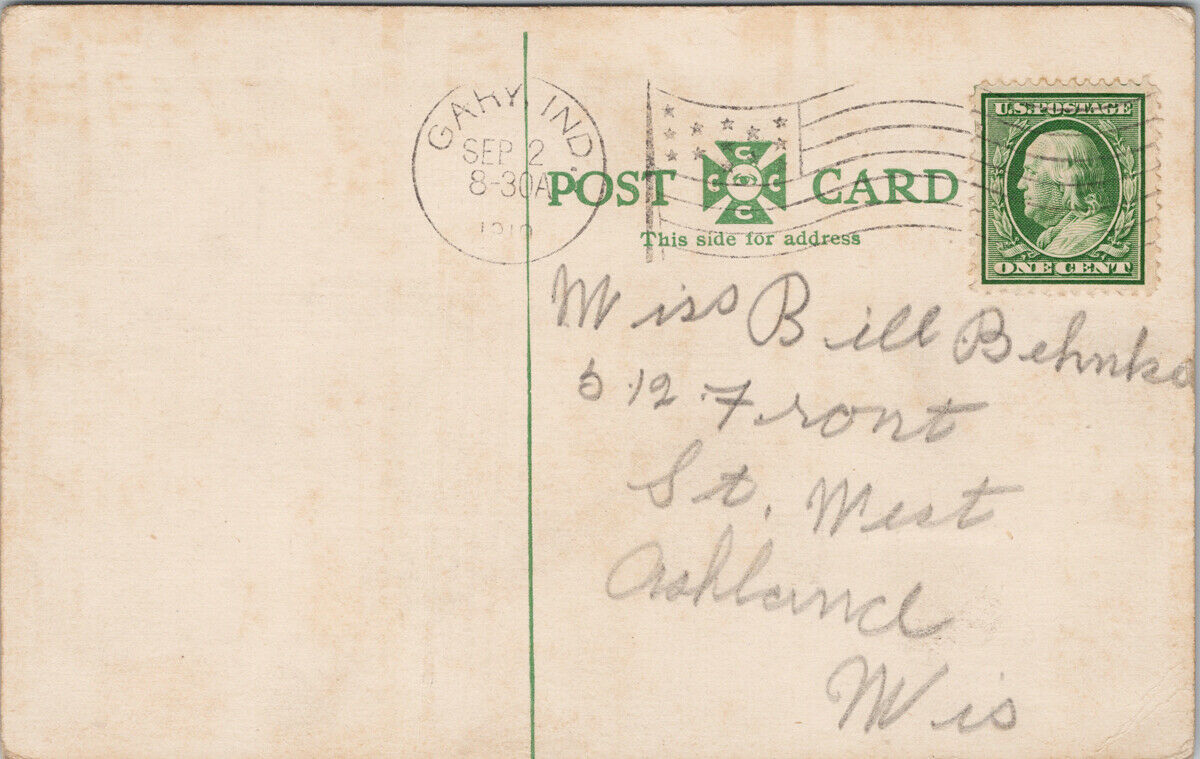 GARY, IND.
SEP 2
8-30A
1910
U.S. POSTAGE
ONE CENT
POST CARD
C C C C
This side for address
Miss Bill Behnke
512 Front
St. West
Ashland
Wis